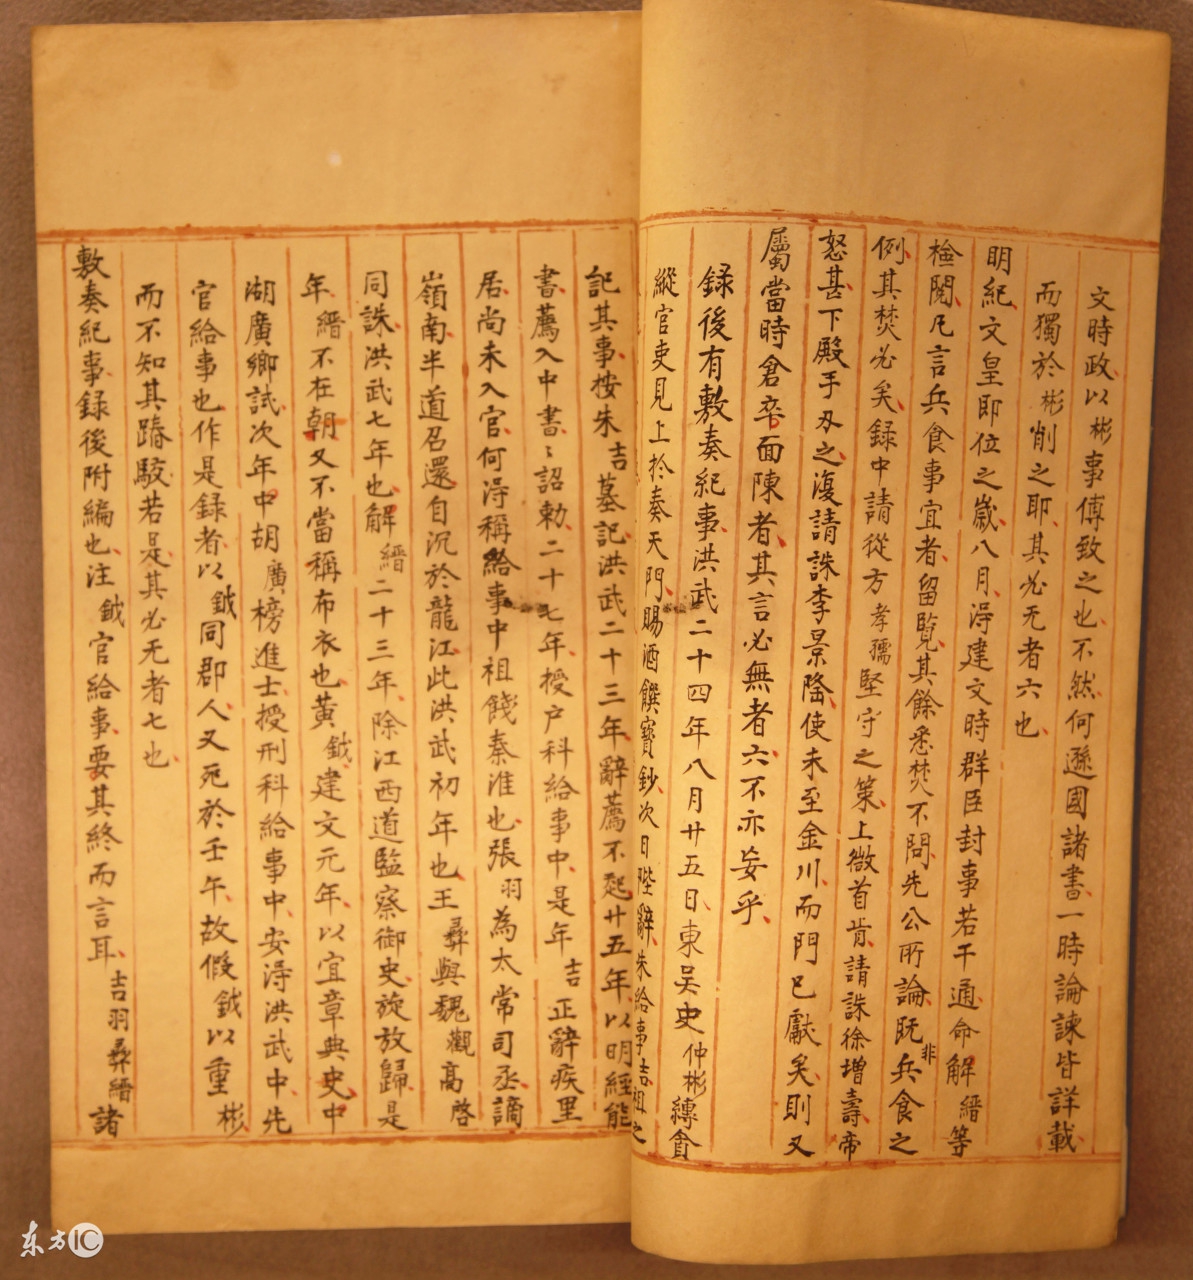 文時政以彬事傅致之也不然何遜國諸書一時論諫皆詳載
而獨於彬削之耶其必无者六也
明紀文皇即位之歲八月淂建文時群臣封事若干通命解縉等
檢閱凡言兵食事宜者留覽其餘悉焚不問先公所論既非兵食之
例其焚必矣録中請從方孝孺堅守之策上微首肯請誅徐增壽帝
怒甚下殿手刃之復請誅李景隆使未至金川而門已獻矣則又
屬當時倉卒面陳者其言必無者六不亦妄乎
録後有敷奏紀事洪武二十四年八月廿五日東吴史仲彬縛貪
縱官吏見上扵奏天門賜酒饌寶鈔次日陛辭朱給事吉祖之
記其事按朱吉墓記洪武二十三年辭薦不起廿五年以明經能
書薦入中書〻詔勅二十七年授户科給事中是年吉正辭疾里
居尚未入官何淂稱給事中祖餞秦淮也張羽為太常司丞謫
嶺南半道召還自沉於龍江此洪武初年也王彞與魏觀高啓
同誅洪武七年也解縉二十三年除江西道監察御史旋放歸是
年縉不在朝又不當稱布衣也黄鉞建文元年以宜章典史中
湖廣鄉試次年中胡廣榜進士授刑科給事中安淂洪武中先
官給事也作是録者以鉞同郡人又死於壬午故假鉞以重彬
而不知其踳駁若是其必无者七也
敷奏紀事録後附編也注鉞官給事要其終而言耳吉羽彞縉諸
东方IC